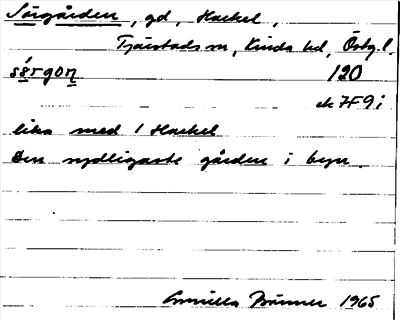 Sörgården, gd, Hackel,
Tjärstads sn, Kinda hd, Östg.l.
sǿrgoṉ 120
ek 7F9i
lika med 1 Hackel
Den sydligaste gården i byn.
Gunilla Brånner 1965